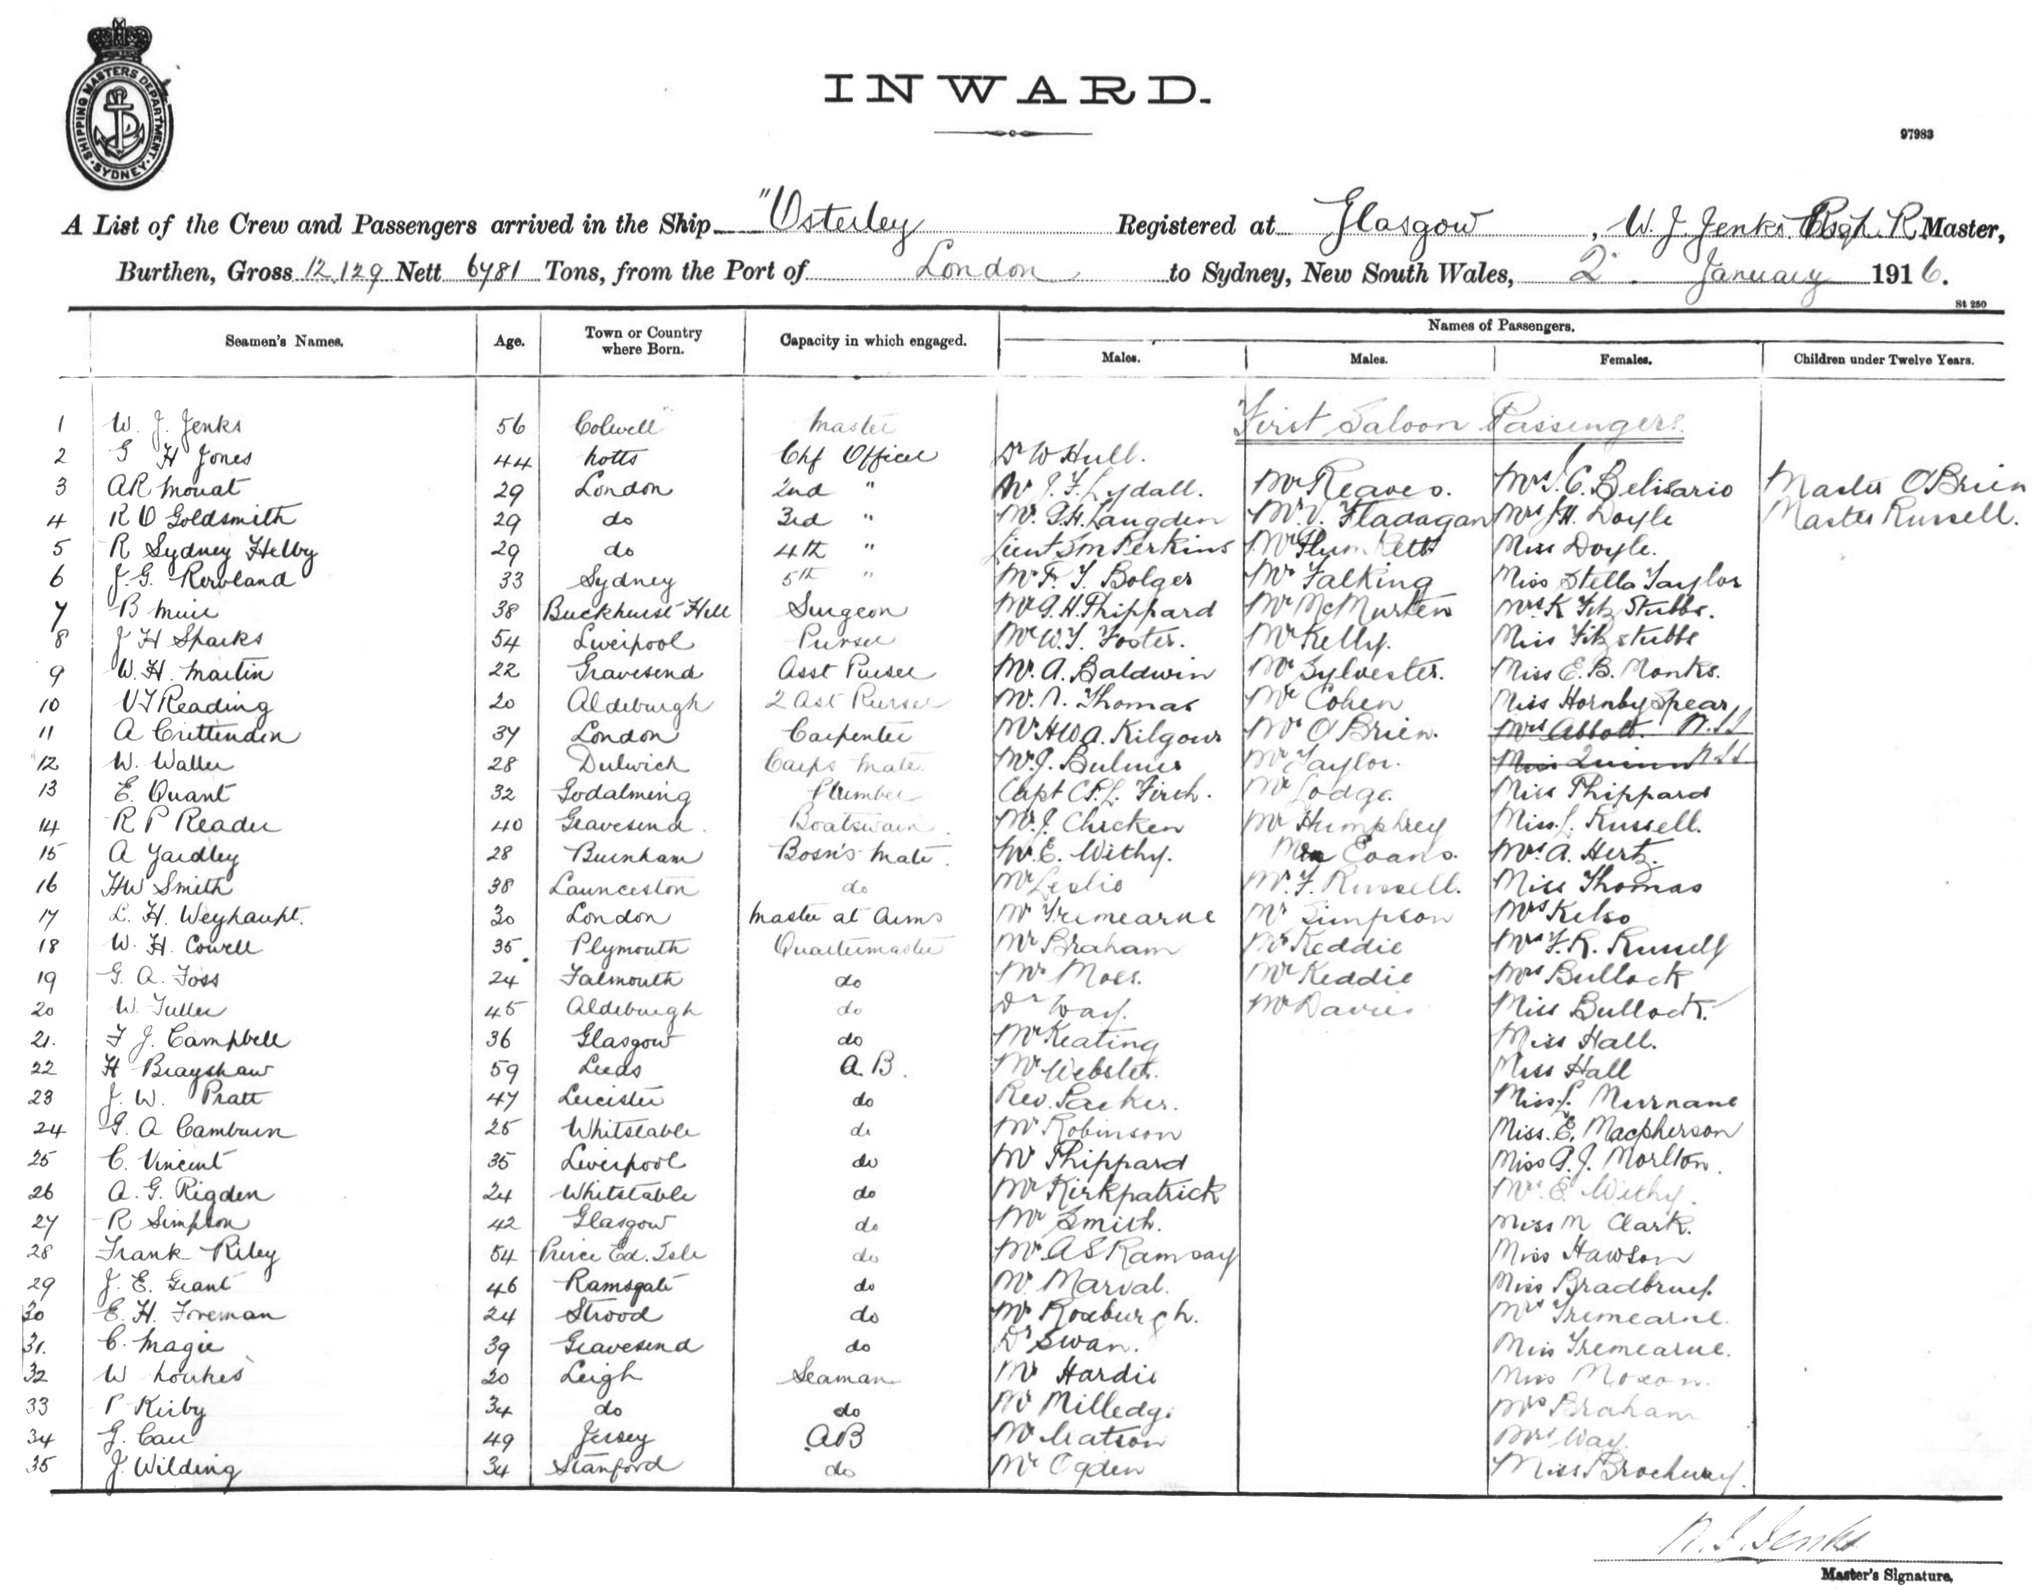 SHIPPING MASTERS DEPARTMENT SYDNEY
INWARD.
97983
A List of the Crew and Passengers arrived in the Ship "Osterley Registered at Glasgow, W. J. Jenks. Master,
Burthen, Gross 12,129 Nett 6781 Tons, from the Port of London, to Sydney, New South Wales, 2. January 1916.
St 250
Seamen's Names. Age. Town or Country where Born. Capacity in which engaged. Names of Passengers.
Males. Males. Females. Children under Twelve Years.
1 W. J. Jenks 56 Colwell Master First Saloon Passengers.
2 G H Jones 44 Notts Chf Officer Dr W Hull.
3 AR Mouat 29 London 2nd " Mr J. F. Lydall. Mr Reaves. Mrs J. C. Belisario Master O'Brien
4 R O Goldsmith 29 do 3rd " Mr. G. H. Langden Mr. V. Fladagan Mrs J H. Doyle Master Russell.
5 R Sydney Helby 29 do 4th " Lieut S M Perkins Mr Plumkett Miss Doyle.
6 J. G. Rowland 33 Sydney 5th " Mr F. T. Bolger Mr Falking Miss Stella Taylor
7 B Muir 38 Buckhurst Hill Surgeon Mr G. H. Phippard Mr McMurten Mrs K Fitz Stubbs.
8 J H Sparks 54 Liverpool Purser Mr W. T. Foster. Mr Kelly. Miss Fitzstubbs
9 W. H. Martin 22 Gravesend Asst Purser Mr. A. Baldwin Mr Sylvester. Miss E. B. Monks.
10 V T Reading 20 Aldeburgh 2 Ast Purser Mr. N. Thomas Mr Cohen Miss Hornby Spear
11 A Crittenden 37 London Carpenter Mr H W A. Kilgour Mr O'Brien. Mrs Abbott. N.SS
12 W. Waller 28 Dulwich Carps Mate. Mr. J. Bulmer Mr Taylor. Miss Quinn N SS
13 E. Quant 32 Godalming Plumber Capt C. P. L. Firch. Mr Lodge. Miss Phippard
14 R P Reader 40 Gravesend. Boatswain. Mr. J. Chicken Mr Humphrey Miss. L. Russell.
15 A Yardley 28 Burnham Bosn's Mate. Mr. E. Withy. Mr Evans. Mrs. A. Hertz.
16 HW Smith 38 Launceston do Mr Leslie Mr. F. Russell. Miss Thomas
17 L. H. Weyhaupt. 30 London Master at Arms Mr Tremearne Mr Simpson Mrs Kelso
18 W. H. Cowell 35. Plymouth Quartermaster Mr Braham Mr Keddie Mrs F. R. Russell
19 G. A. Foss 24 Falmouth do Mr Moss. Mr Keddie Mrs Bullock
20 W. Fuller 45 Aldeburgh do Dr Way. Mr Davies Miss Bullock.
21. F J. Campbell 36 Glasgow do Mr Keating Miss Hall.
22 H Brayshaw 59 Leeds A. B. Mr Webster. Miss Hall
23 J. W. Pratt 47 Leicister do Rev. Parker. Miss. L. Murnane
24 G. A Camburn 25 Whitstable do Mr Robinson Miss. E. Macpherson
25 C. Vincent 35 Liverpool do Mr Phippard Miss A. J. Morlton.
26 A. G. Rigden 24 Whitstable do Mr Kirkpatrick Mrs. E. Withy.
27 R Simpson 42 Glasgow do Mr Smith. Miss M Clark.
28 Frank Riley 54 Prince Ed. Isle do Mr. A S Ramsay Miss Hawson
29 J. E. Grant 46 Ramsgate do Mr. Marval. Miss Bradbrug.
30 E. H. Foreman 24 Strood do Mr Roxburgh. Mrs Tremearne.
31. C. Magie 39 Gravesend do Dr Swan. Miss Tremearne.
32 W Loukes 20 Leigh Seaman Mr Hardie Miss Moxon.
33 P Kirby 34 do do Mr Milledge Mrs Braham
34 G. Carr 49 Jersey AB Mr Watson Mrs Way.
35 J. Wilding 34 Stanford do Mr Ogden Miss Brockway.
W. J. Jenks
Master's Signature,